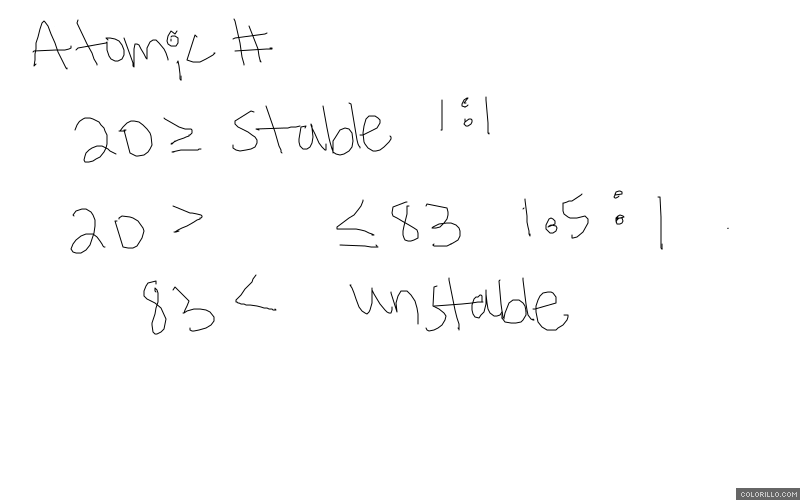 Atomic #
20 ≥ stable 1:1
20 > ≤ 83 1.5 : 1
83 < unstable
COLORILLO.COM